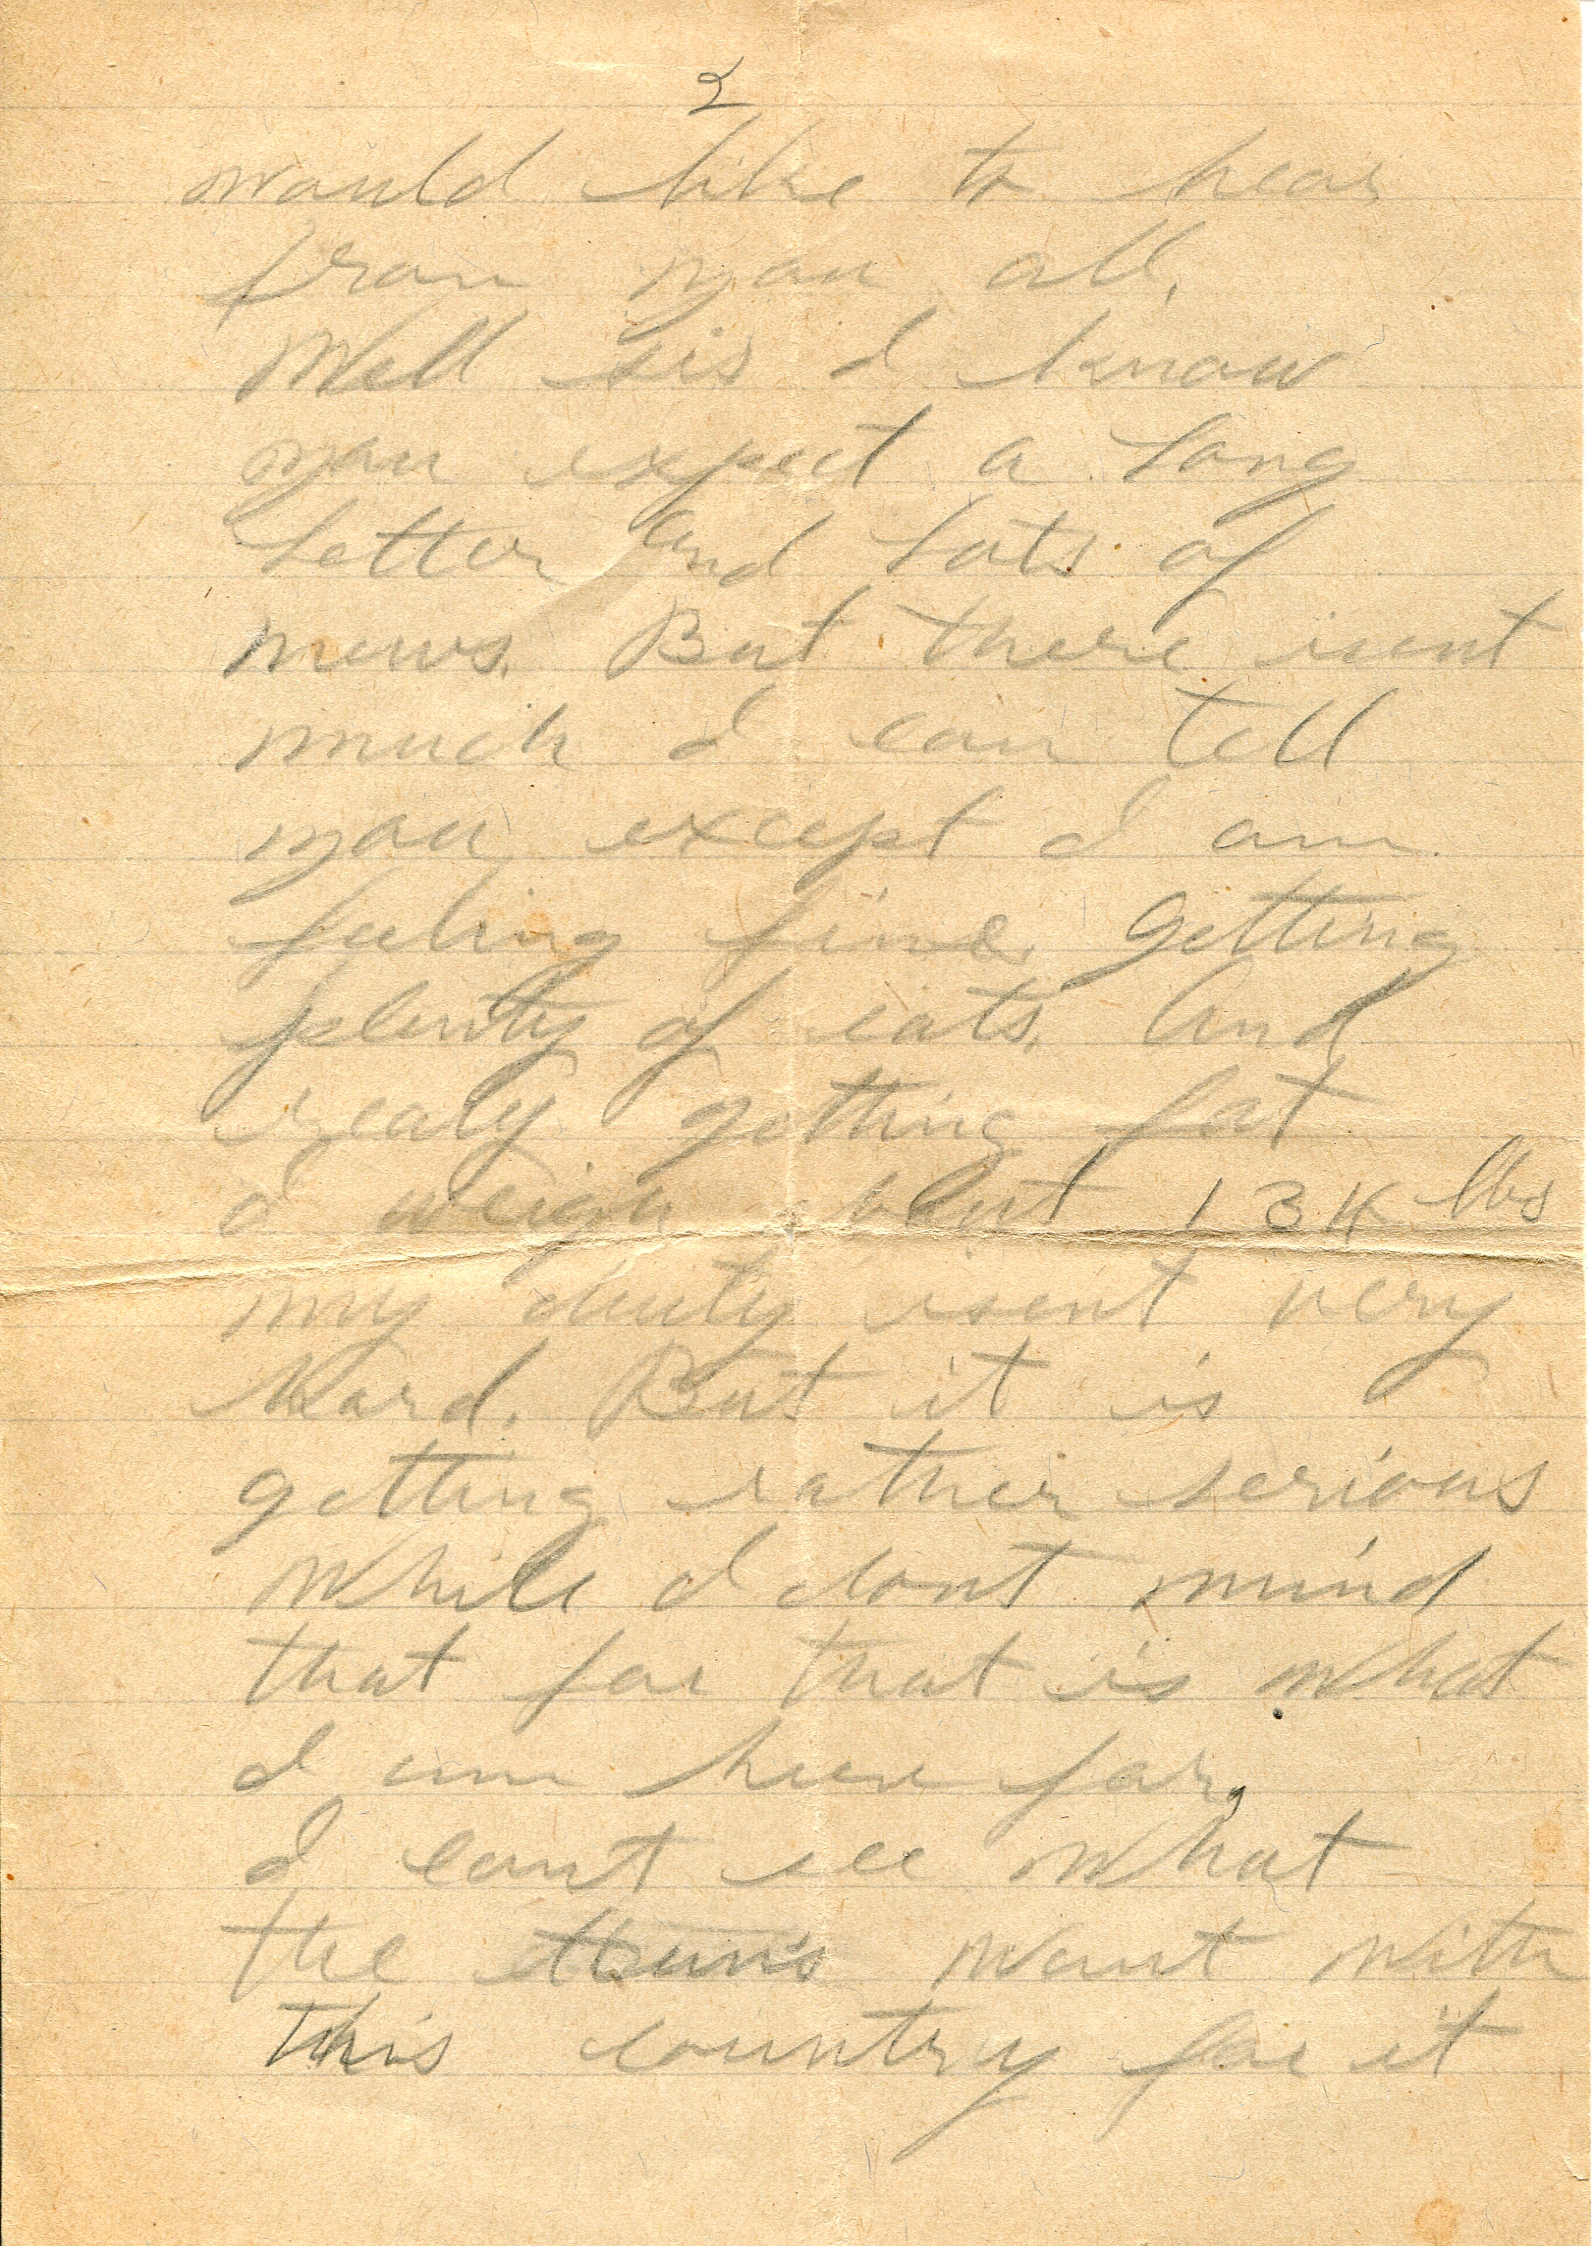 2
would like to hear
from you all,
Well sis I know
you expect a long
letter and lots of
news. But there isent
much I can tell
you except I am
feeling fine. Getting
plenty of eats. And
realy getting fat
I weigh about lbs
my duty isent very
hard. But it is
getting rather serious
While I dont mind
that for that is what
I am here for,
I cant see what
the Huns want with
this country for it